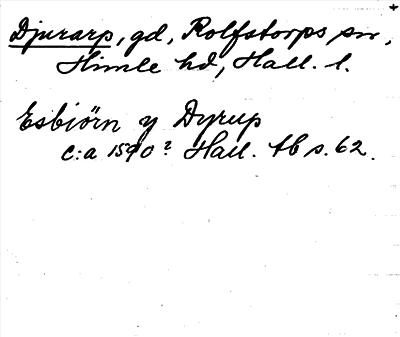 Djurarp, gd, Rolfstorps sn,
Himle hd, Hall. l.
Esbiörn y Dyrup
c:a 1590? Hall. tb s. 62.